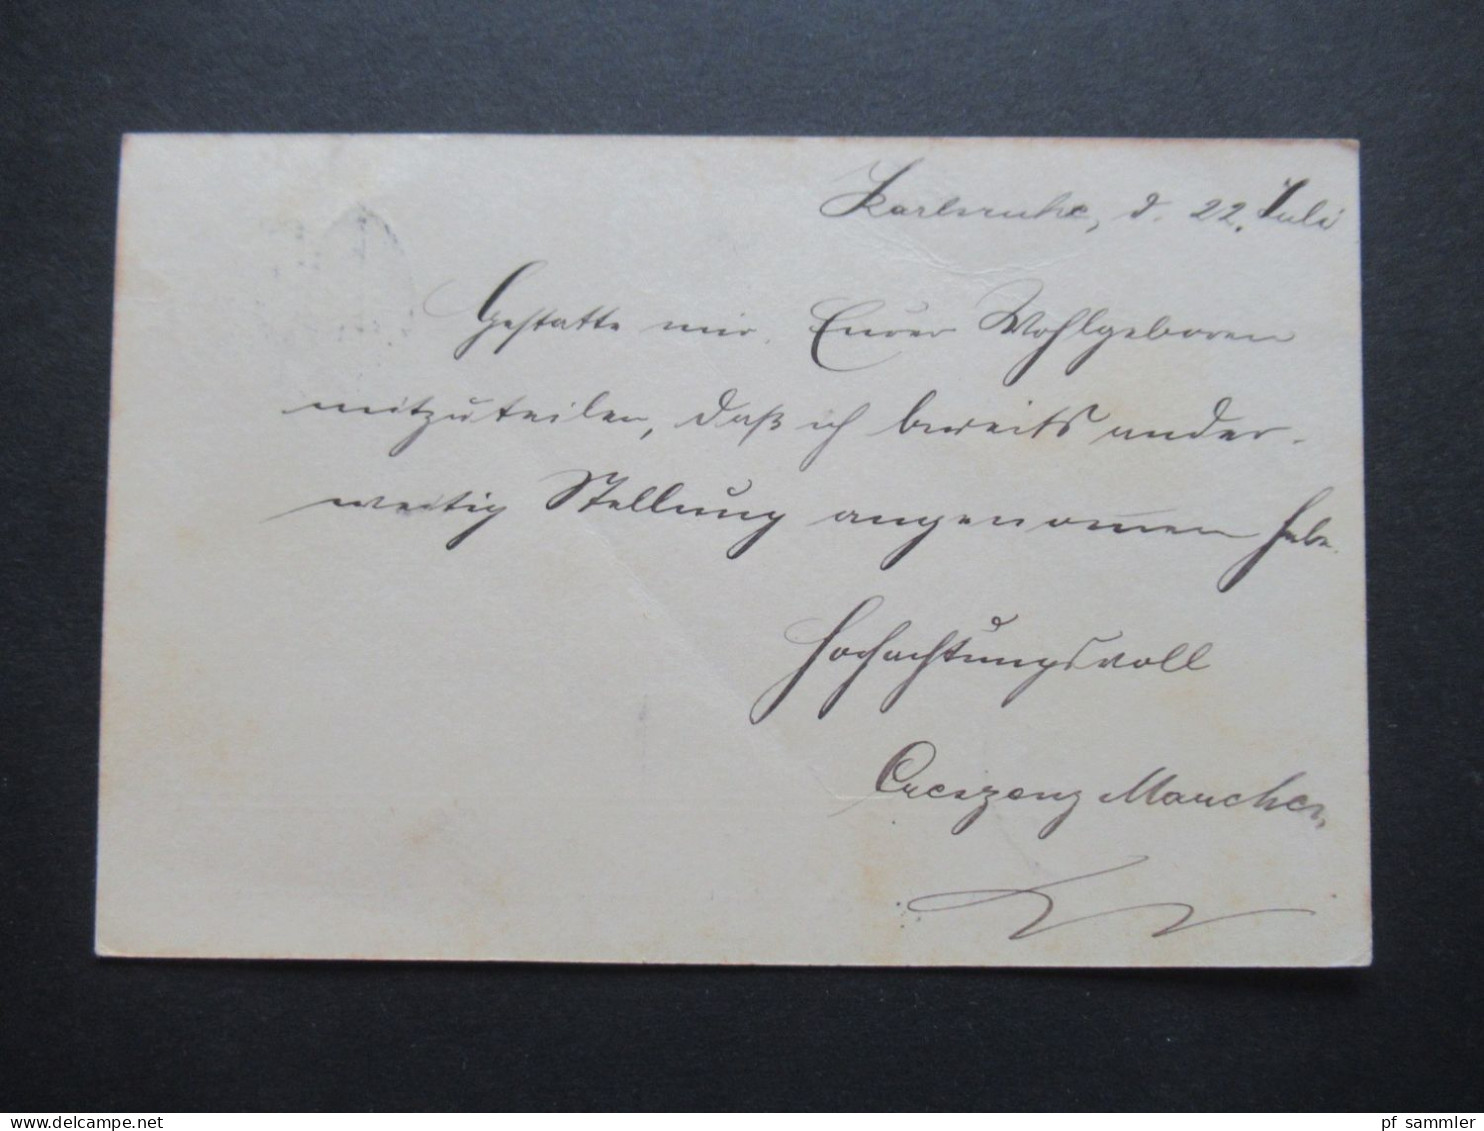 Karlsruhe, d. 22. Juli
Gestatte mir Eurer Wohlgeboren
mitzuteilen, daß ich bereits ander-
weitig Stellung angenomen habe.
Hochachtungsvoll
pf sammler